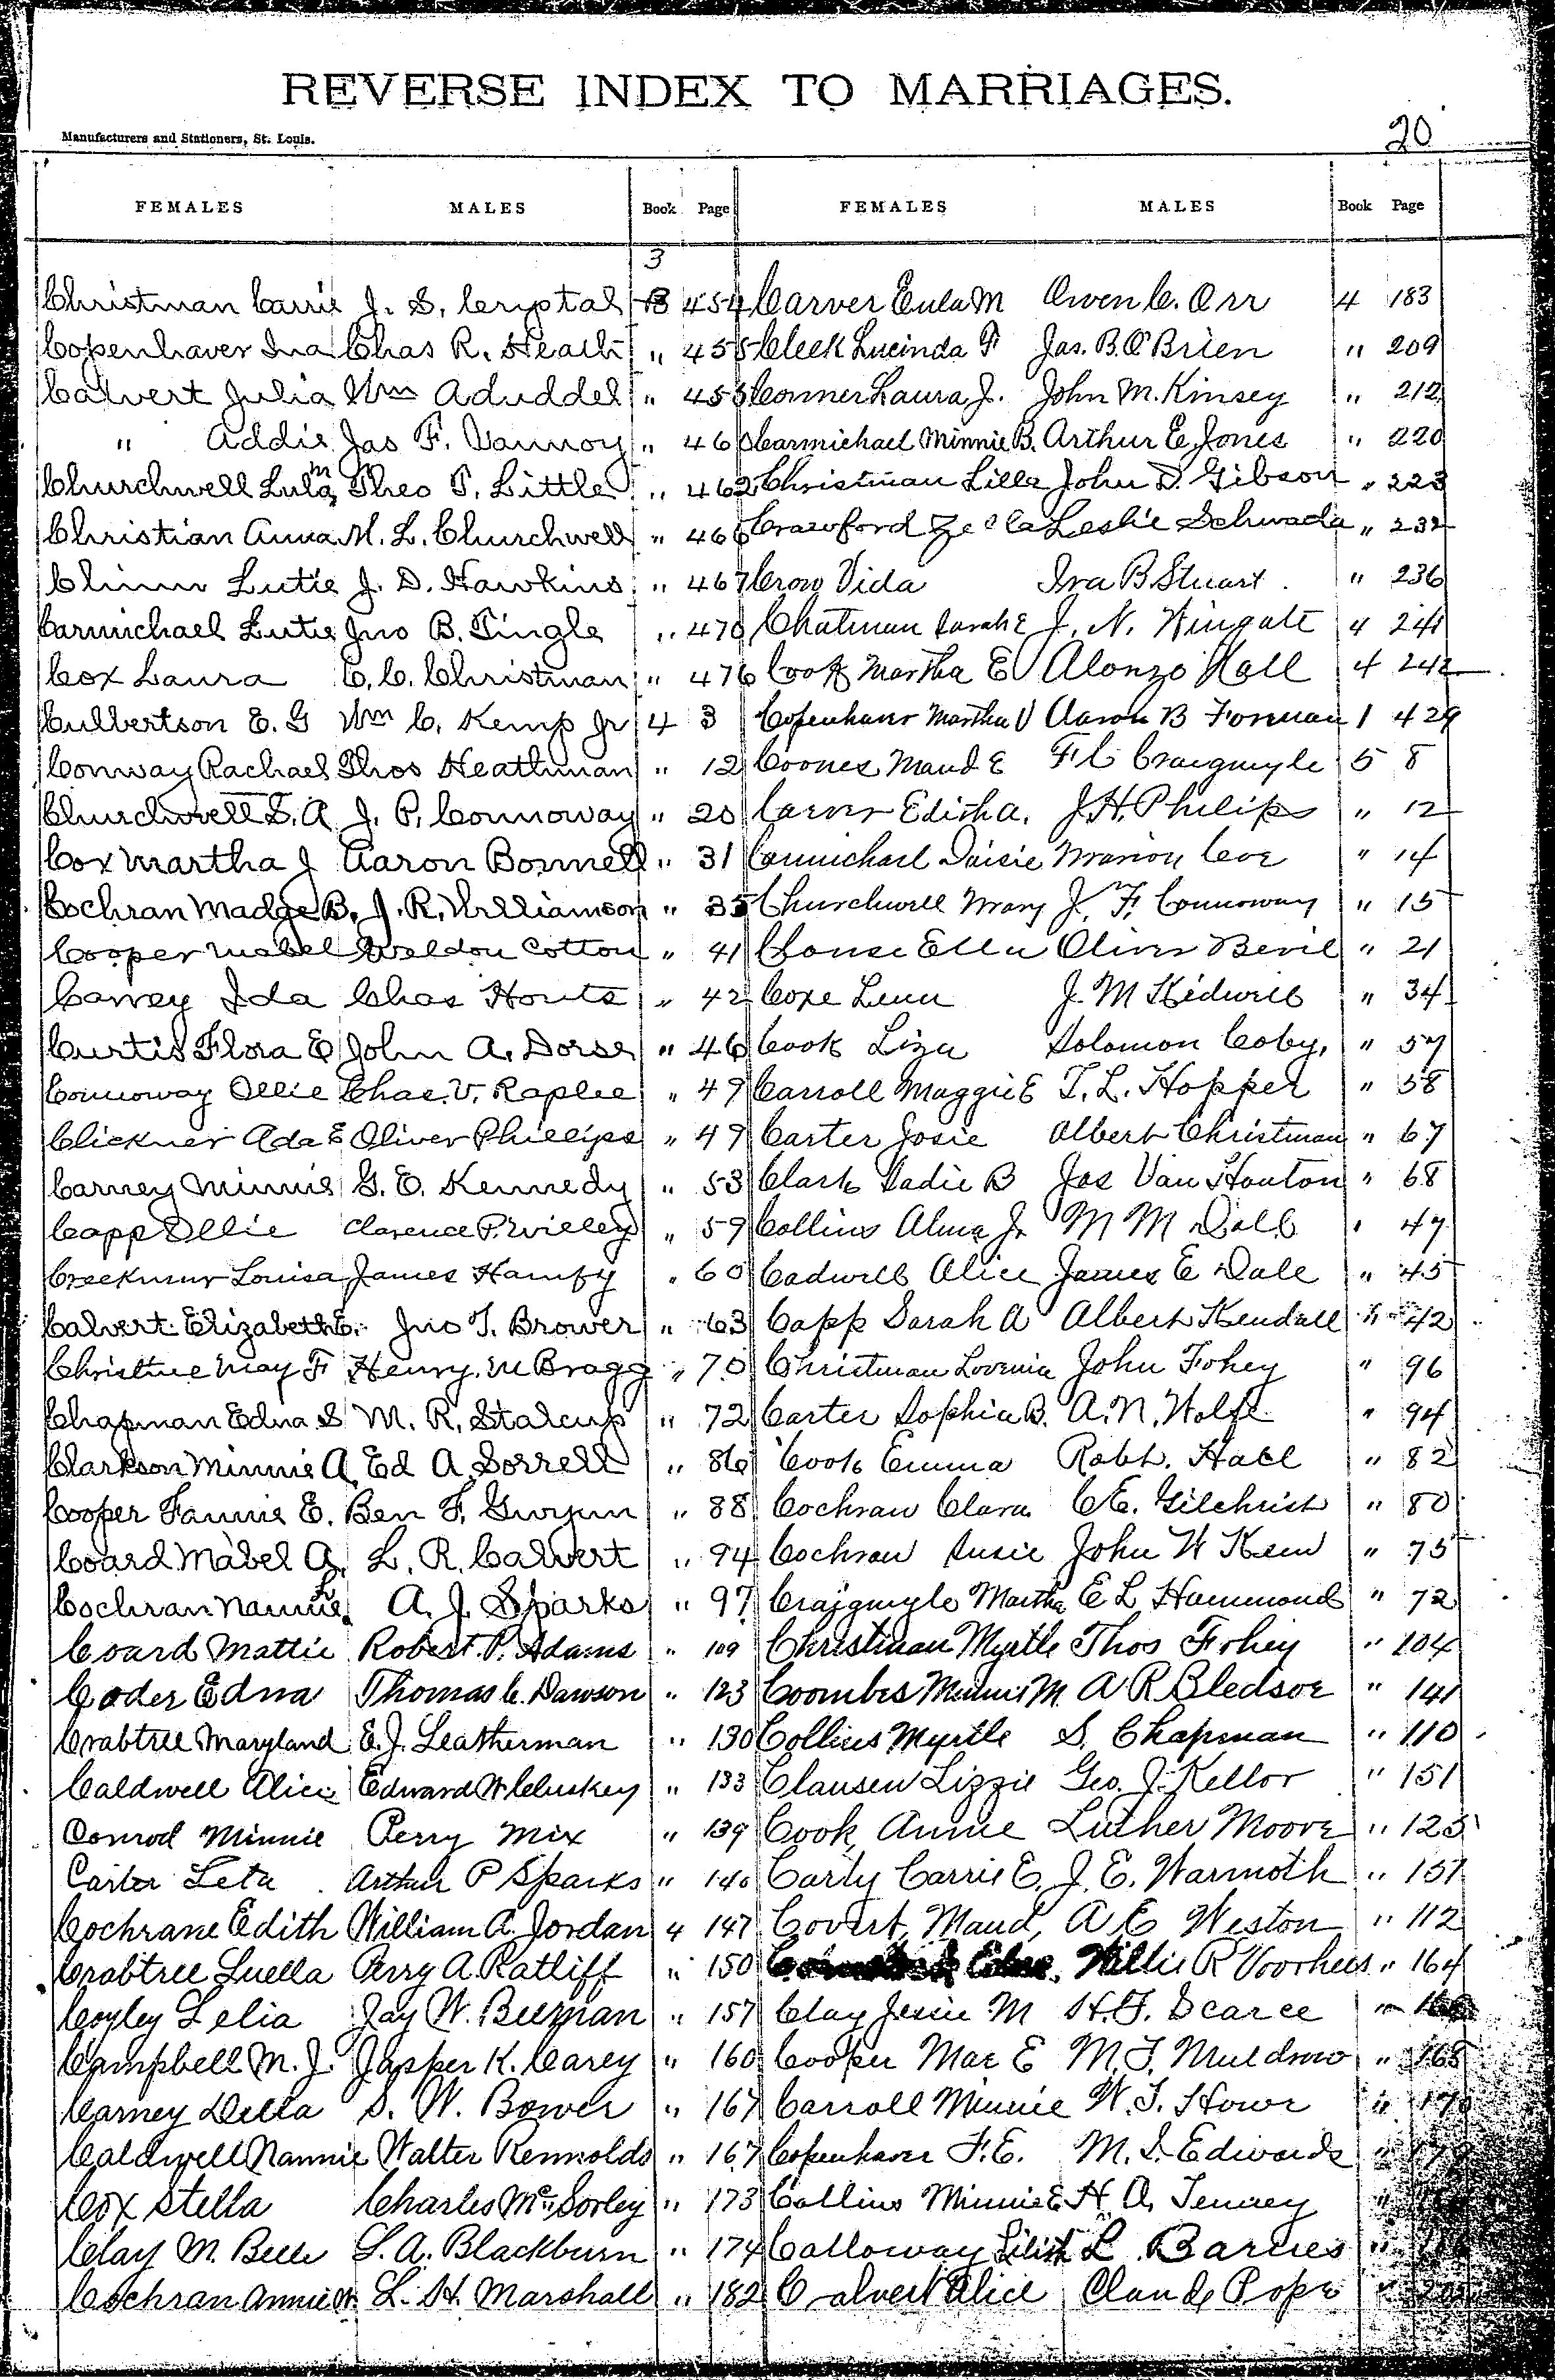 REVERSE INDEX TO MARRIAGES.
20
Manufacturers and Stationers, St. Louis.
FEMALES MALES Book Page FEMALES MALES Book Page
3
Christman Carrie J. S. Cryptal 454 Carver Eula M Owen C. Orr 4 183
Copenhaver Ina Chas R. Heath " 455 Cleek Lucinda F Jas. B. O'Brien " 209
Calvert Julia Wm Aduddel " 455 Conner Laura J. John M. Kinsey " 212
" Addie Jas F. Vannoy " 460 Carmichael Minnie B. Arthur E. Jones " 220
Churchwell Lula M Theo T. Little " 462 Christman Lilla John D. Gibson " 223
Christian Anna M. L. Churchwell " 466 Crawford Zella Leslie Schwada " 232
Chinn Lutie J. D. Hawkins " 467 Crow Vida Ira B Stuart " 236
Carmichael Lutie Jno B. Tingle " 470 Chatman Sarah E J. N. Wingate 4 241
Cox Laura C. C. Christman " 476 Cook Martha E Alonzo Hall 4 242
Culbertson E. G Wm C. Kemp Jr 4 3 Copenhaver Martha V Aaron B Forman 1 429
Conway Rachael Thos Heathman " 12 Coones Maud E F C Craigmyle 5 8
Churchwell S. A J. P. Connoway " 20 Carver Edith A. J. H. Philips " 12
Cox Martha J Aaron Bonnell " 31 Carmichael Daisie Marion Coe " 14
Cochran Madge B. J. R. Williamson " 35 Churchwell Mary J. F. Connoway " 15
Cooper Mabel Weldon Cotton " 41 Clouse Ella Oliver Bevil " 21
Carrey Ida Chas Houts " 42 Coxe Lena J. M Kidwell " 34
Curtis Flora E John A. Dorse " 46 Cook Liza Solomon Coby, " 57
Connoway Ollie Chas. V. Raplee " 49 Carroll Maggie E T. L. Hopper " 58
Clickner Ada E Oliver Phillips " 49 Carter Josie Albert Christman " 67
Carney Minnie G. E. Kennedy " 53 Clark Sadie B Jas Van Houton " 68
Capp Ollie Clarence P. Willey " 59 Collins Alma J. M M Dall " 47
Creekmur Louisa James Hamfy " 60 Cadwell Alice James E Dale " 45
Calvert Elizabeth E. Jno T. Brower " 63 Capp Sarah A Albert Kendall " 42
Christine May F Henry M Bragg " 70 Christman Lovenia John Fohey " 96
Chapman Edna S M. R. Stalcup " 72 Carter Sophia B. A. N. Wolfe " 94
Clarkson Minnie A. Ed A. Sorrell " 86 Cook Emma Robt. Hall " 82
Cooper Fannie E. Ben F. Gwynn " 88 Cochran Clara C. E. Gilchrist " 80
Coard Mabel A. L. R. Calvert " 94 Cochran Susie John W Kem " 75
Cochran Nannie L. A. J. Sparks " 97 Craigmyle Martha E L Hammond " 72
Coard Mattie Robert. P. Adams " 109 Christman Myrtle Thos Fohey " 104
Coder Edna Thomas C. Dawson " 123 Coombes Minnie M. A R Bledsoe " 141
Crabtree Maryland E. J. Leatherman " 130 Collins Myrtle S. Chapman " 110
Caldwell Alice Edward W Cluskey " 133 Clausen Lizzie Geo. J. Kellor " 151
Conrod Minnie Perry Mix " 139 Cook Annie Luther Moore " 125
Carter Leta Arthur P Sparks " 140 Carty Carrie E. J. E. Warmoth " 157
Cochrane Edith William A. Jordan 4 147 Covert, Maud, A E Weston " 112
Crabtree Luella Perry A. Ratliff " 150 Willie R Voorhees " 164
Coyley Lelia Jay W. Beeman " 157 Clay Jessie M H. F. Scarce "
Campbell M. J. Jasper K. Carey " 160 Cooper Mae E M. F. Muldrow " 165
Carney Della S. W. Bower " 167 Carroll Minnie W. T. Howe " 170
Caldwell Nannie Walter Rennolds " 167 Copenhaver F. E. M. I. Edwards "
Cox Stella Charles McSorley " 173 Collins Minnie E. H. A. Tenney "
Clay M. Belle L. A. Blackburn " 174 Calloway L. Barnes "
Cochran Annie W. L. H. Marshall " 182 Calvert Alice Claude Pope "